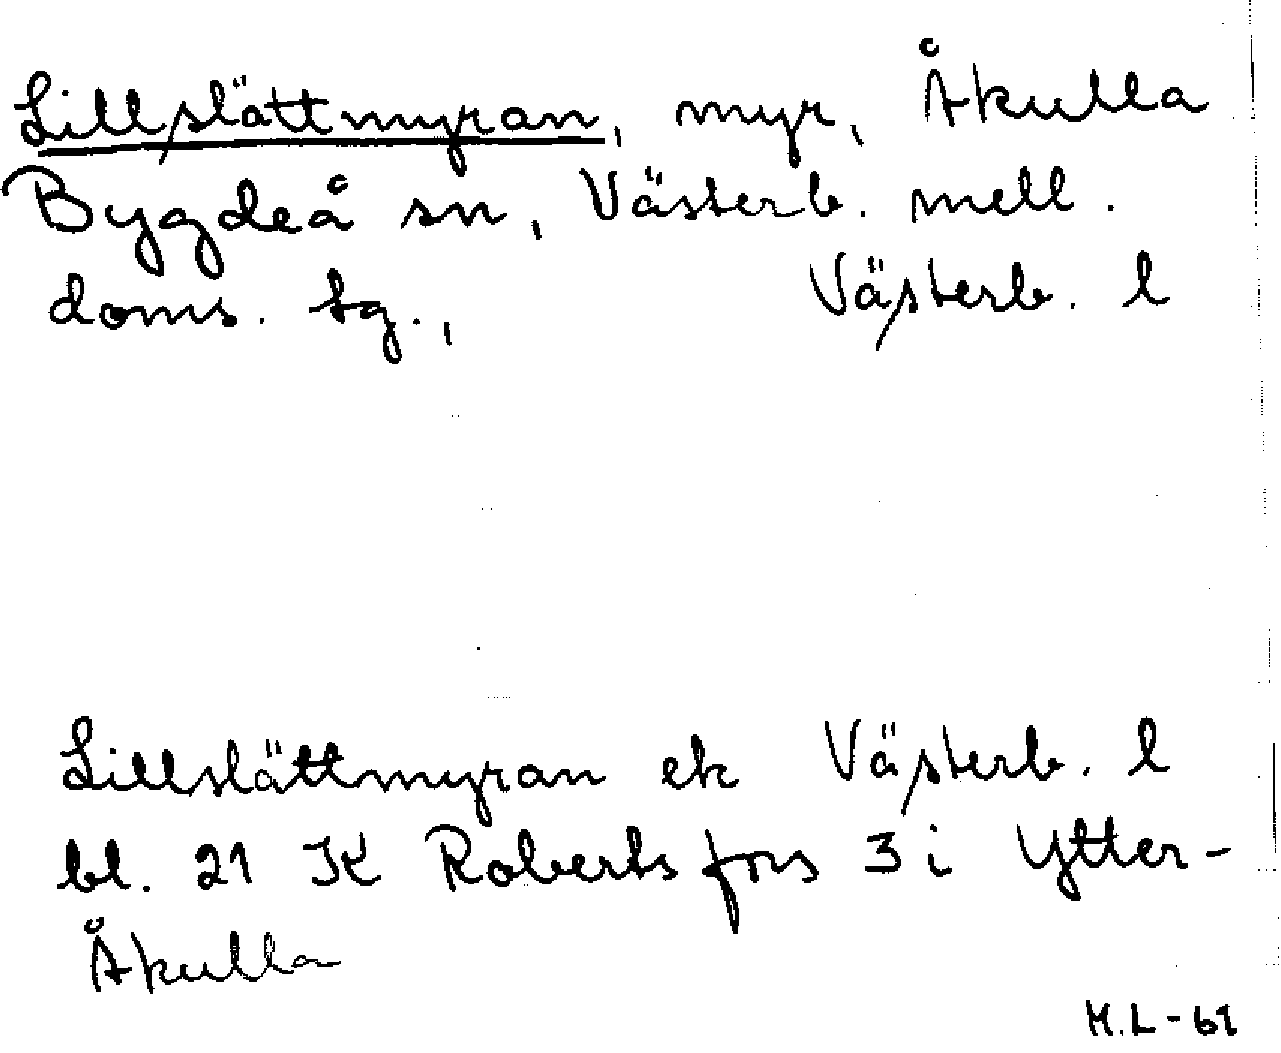 Lillslättmyran, myr, Åkulla
Bygdeå sn, Västerb. mell.
doms. sg., Västerb. l
Lillslättmyran ek Västerb. l
bl. 21 K Robertsfors 3 i Ytter-
Åkulla
M.L-61